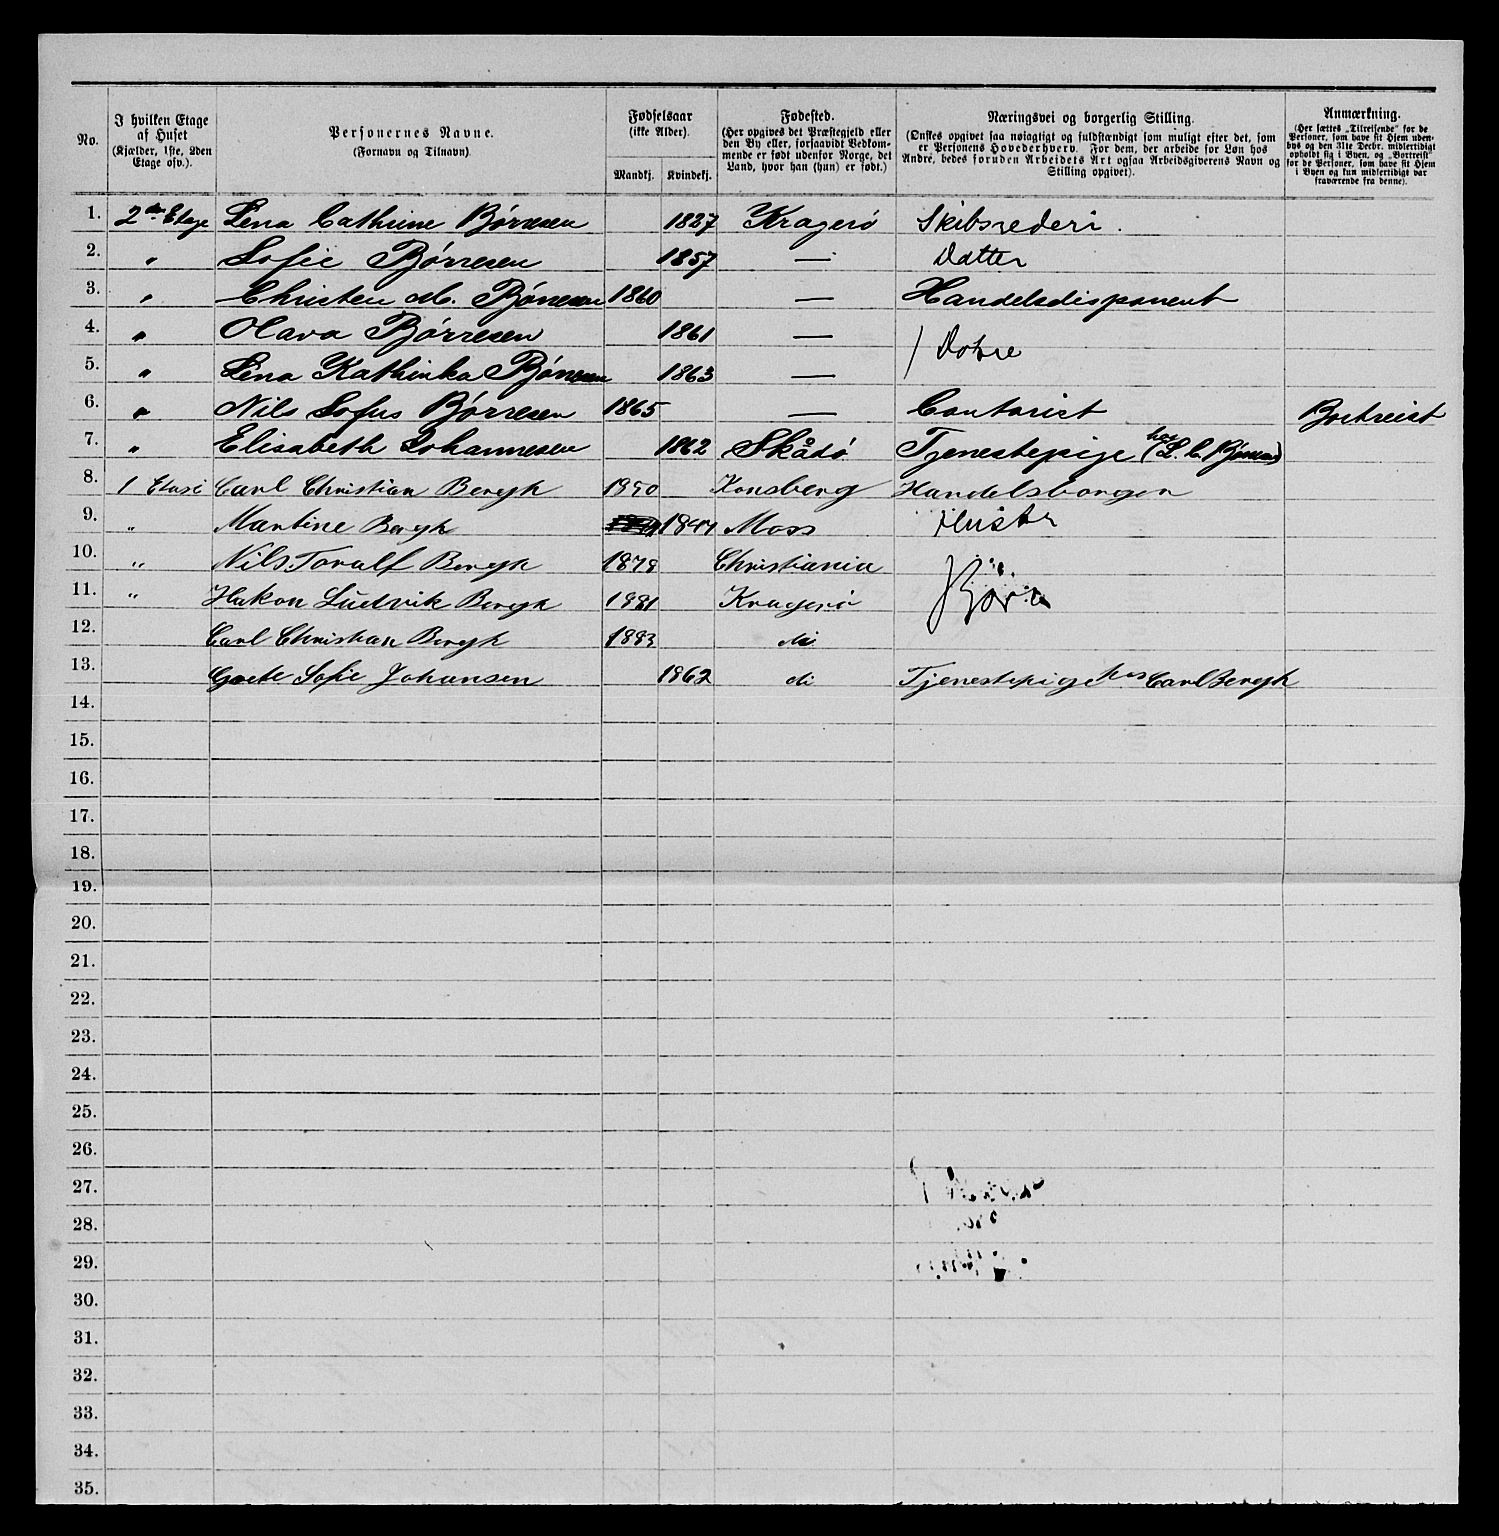 No. | I hvilken Etage af Huset (Kjælder, 1ste, 2den Etage osv.). | Personernes Navne. (Fornavn og Tilnavn). | Fødselsaar (ikke Alder). Mandkj. | Kvindekj. | Fødested. (Her opgives det Præstegjeld eller den By eller, forsaavidt Vedkommende er født udenfor Norge, det Land, hvor han (hun) er født.) | Næringsvei og borgerlig Stilling. (Ønskes opgivet saa nøiagtigt og fuldstændigt som muligt efter det, som er Personens Hovederhverv. For dem, der arbeide for Løn hos Andre, bedes foruden Arbeidets Art ogsaa Arbeidsgiverens Navn og Stilling opgivet). | Anmærkning. (Her sættes „Tilreisende" for de Personer, som have sit Hjem udenbys og den 31te Decbr. midlertidigt opholdt sig i Byen, og „Bortreist" for de Personer, som have sit Hjem i Byen og kun midlertidigt var fraværende fra denne).
1. 2den Etage Lena Cathrine Børresen 1827 Kragerö Skibsrederi.
2. " Sofie Børresen 1857 — Datter
3. " Christen M. Børresen 1860 — Handelsdisponent
4. " Olava Børresen 1861 —
5. " Lena Kathinka Børresen 1863 — Døtre
6. " Nils Sofus Børresen 1865 — Contorist Bortreist
7. " Elisabeth Johannesen 1862 Skåtö Tjenestepige (hos L. C. Børresen)
8. 1 Etasi Carl Christian Bergh 1850 Konsberg Handelsborger
9. " Martine Bergh Moss Huster
10. " Nils Toralf Bergh 1878 Christiania
11. " Hakon Ludvik Bergh 1881 Kragerö Børn
12. Carl Christian Bergh 1883 do
13. Grete Sofie Johansen 1862 do Tjenestepige hos Carl Bergh
14.
15.
16.
17.
18.
19.
20.
21.
22.
23.
24.
25.
26.
27.
28.
29.
30.
31.
32.
33.
34.
35.